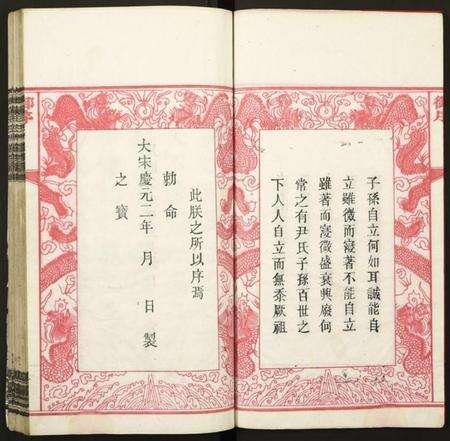 御序
子孫自立何如耳誠能自
立雖微而寖著不能自立
雖著而寖微盛衰興廢何
常之有尹氏子孫百世之
下人人自立而無忝厥祖
此朕之所以序焉
勅命
大宋慶元二年 月 日 製
之寶
御序